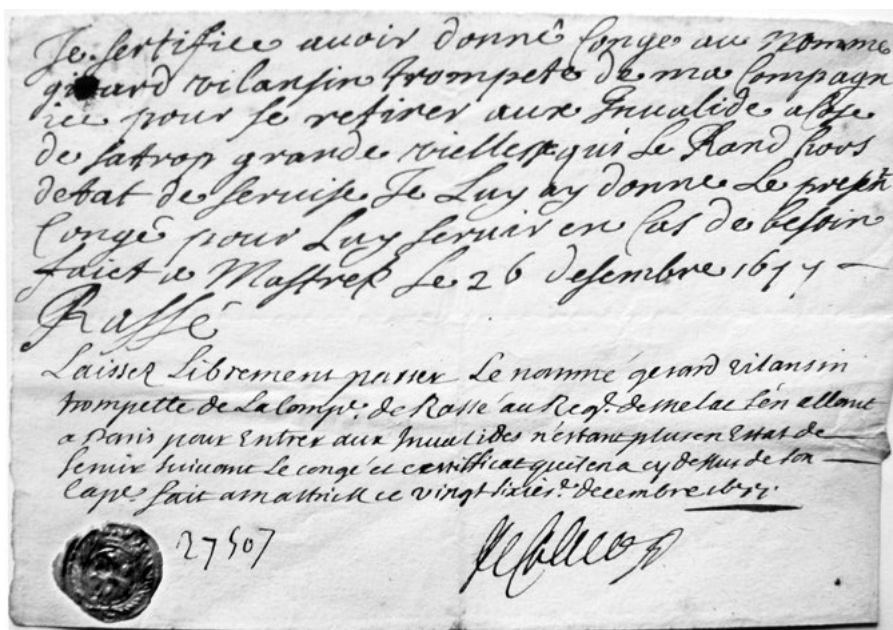 Je sertifiee auoir donné Conge au nomme
girard vilansin trompete de ma Compagn
iee pour se retirer aux Inualide
de satrop grande viellesse qui Le Rand hors
detat de seruise Je Luy ay donne Le presnt
Congé pour Luy seruir en Cas de besoin
faict a Mastrek Le 26 desembre 1677
Rassé
Laissez Librement passer Le nommé gerard vilansin
trompette de La Compe. de Rassé au Reg. de melac s'en allant
a Paris pour Entrer aux Inualides n'estant plus en Estat de
seruir suiuant Le congé et certifficat qu'il en a cy dessus de son
Cape. fait a mastrick ce vingt sixies.e decembre 1677.
27507